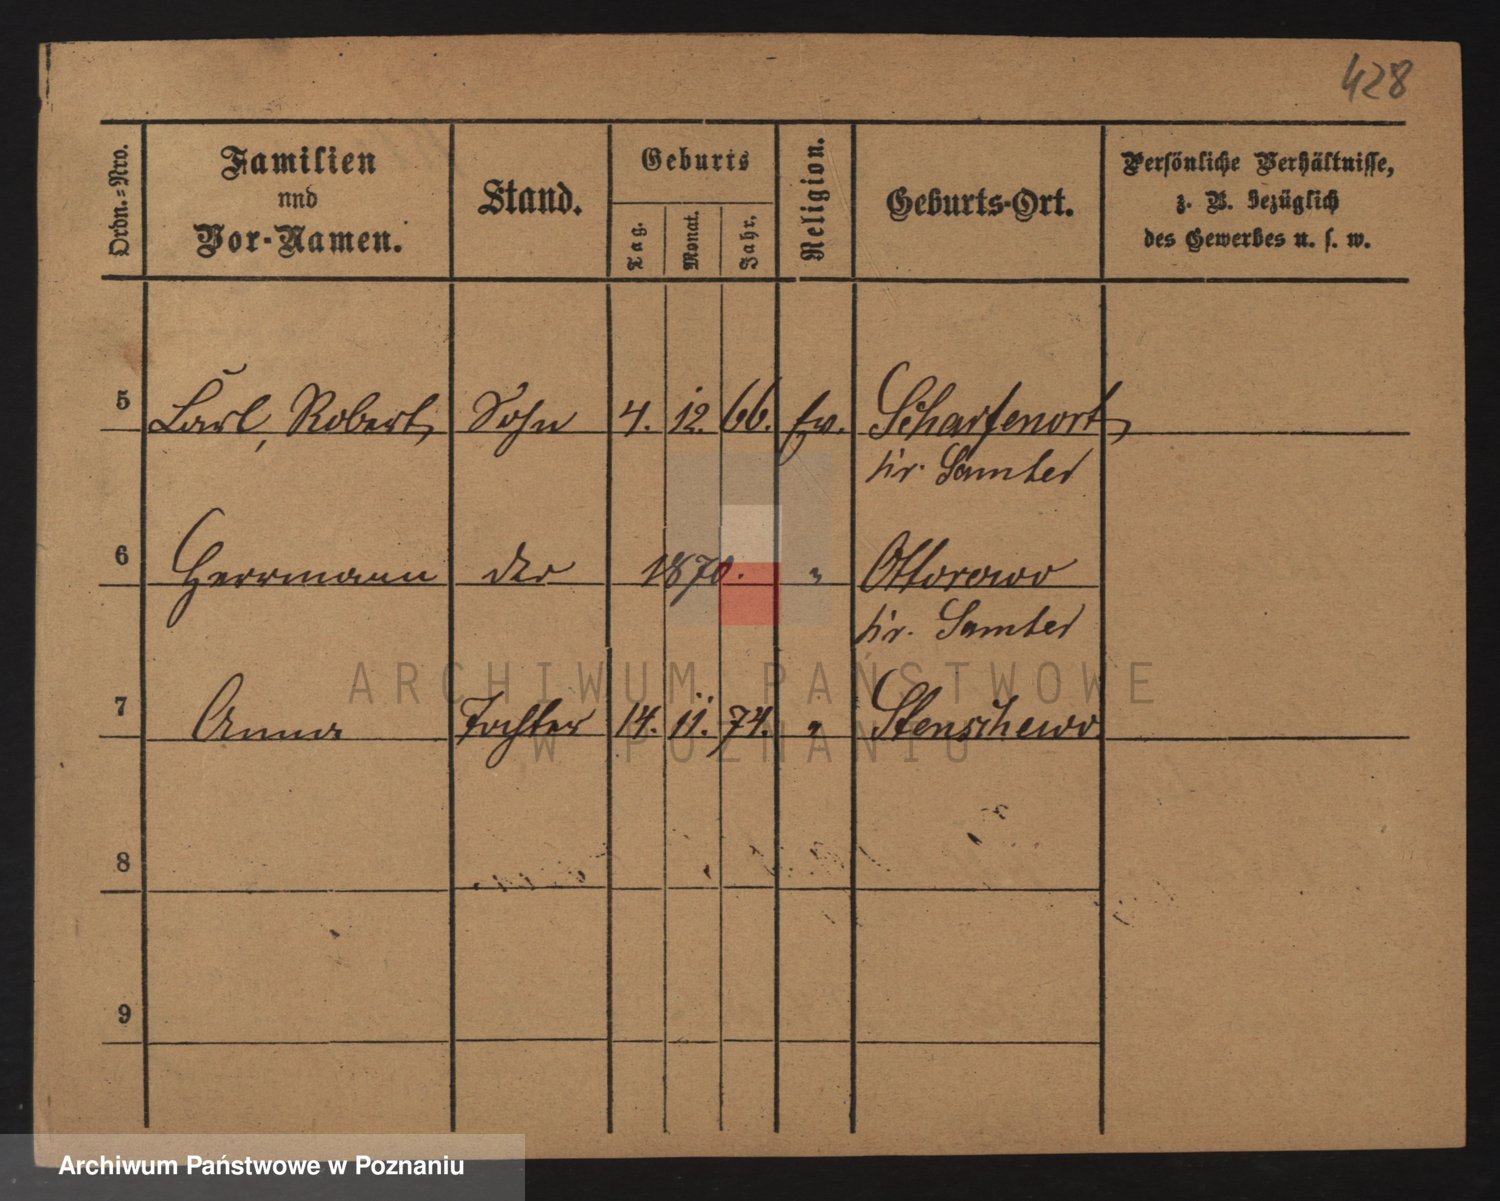 428
Ordn.-Nro.
Familien
und
Vor-Namen.
Stand.
Geburts
Tag.
Monat.
Jahr.
Religion.
Geburts-Ort.
Persönliche Verhältnisse,
z. B. bezüglich
des Gewerbes u. s. w.
5 Carl, Robert, Sohn 4. 12. 66. ev. Scharfenort,
Kr. Samter
6 Herrmann dto 1870. " Ottorowo
Kr. Samter
7 Anna Tochter 14. 11. 74. " Stenschewo.
8
9
ARCHIWUM PAŃSTWOWE
W POZNANIU
Archiwum Państwowe w Poznaniu